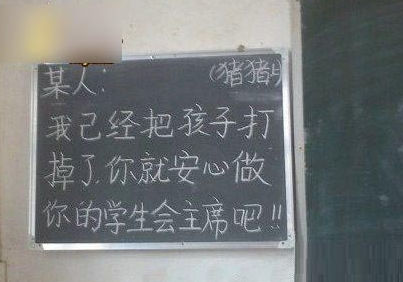 某人: (猪猪)
我己经把孩子打
掉了,你就安心做
你的学生会主席吧!!